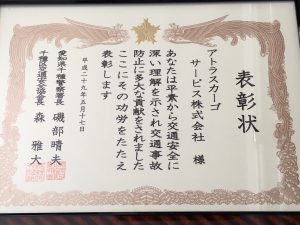 表彰状
アトラスカーゴ
サービス株式会社 様
あなたは平素から交通安全に
深い理解を示され交通事故
防止に多大な貢献をされました
ここにその功労をたたえ
表彰します
平成二十九年五月十七日
愛知県千種警察署長 磯部晴夫
千種交通安全協会長 森 雅大